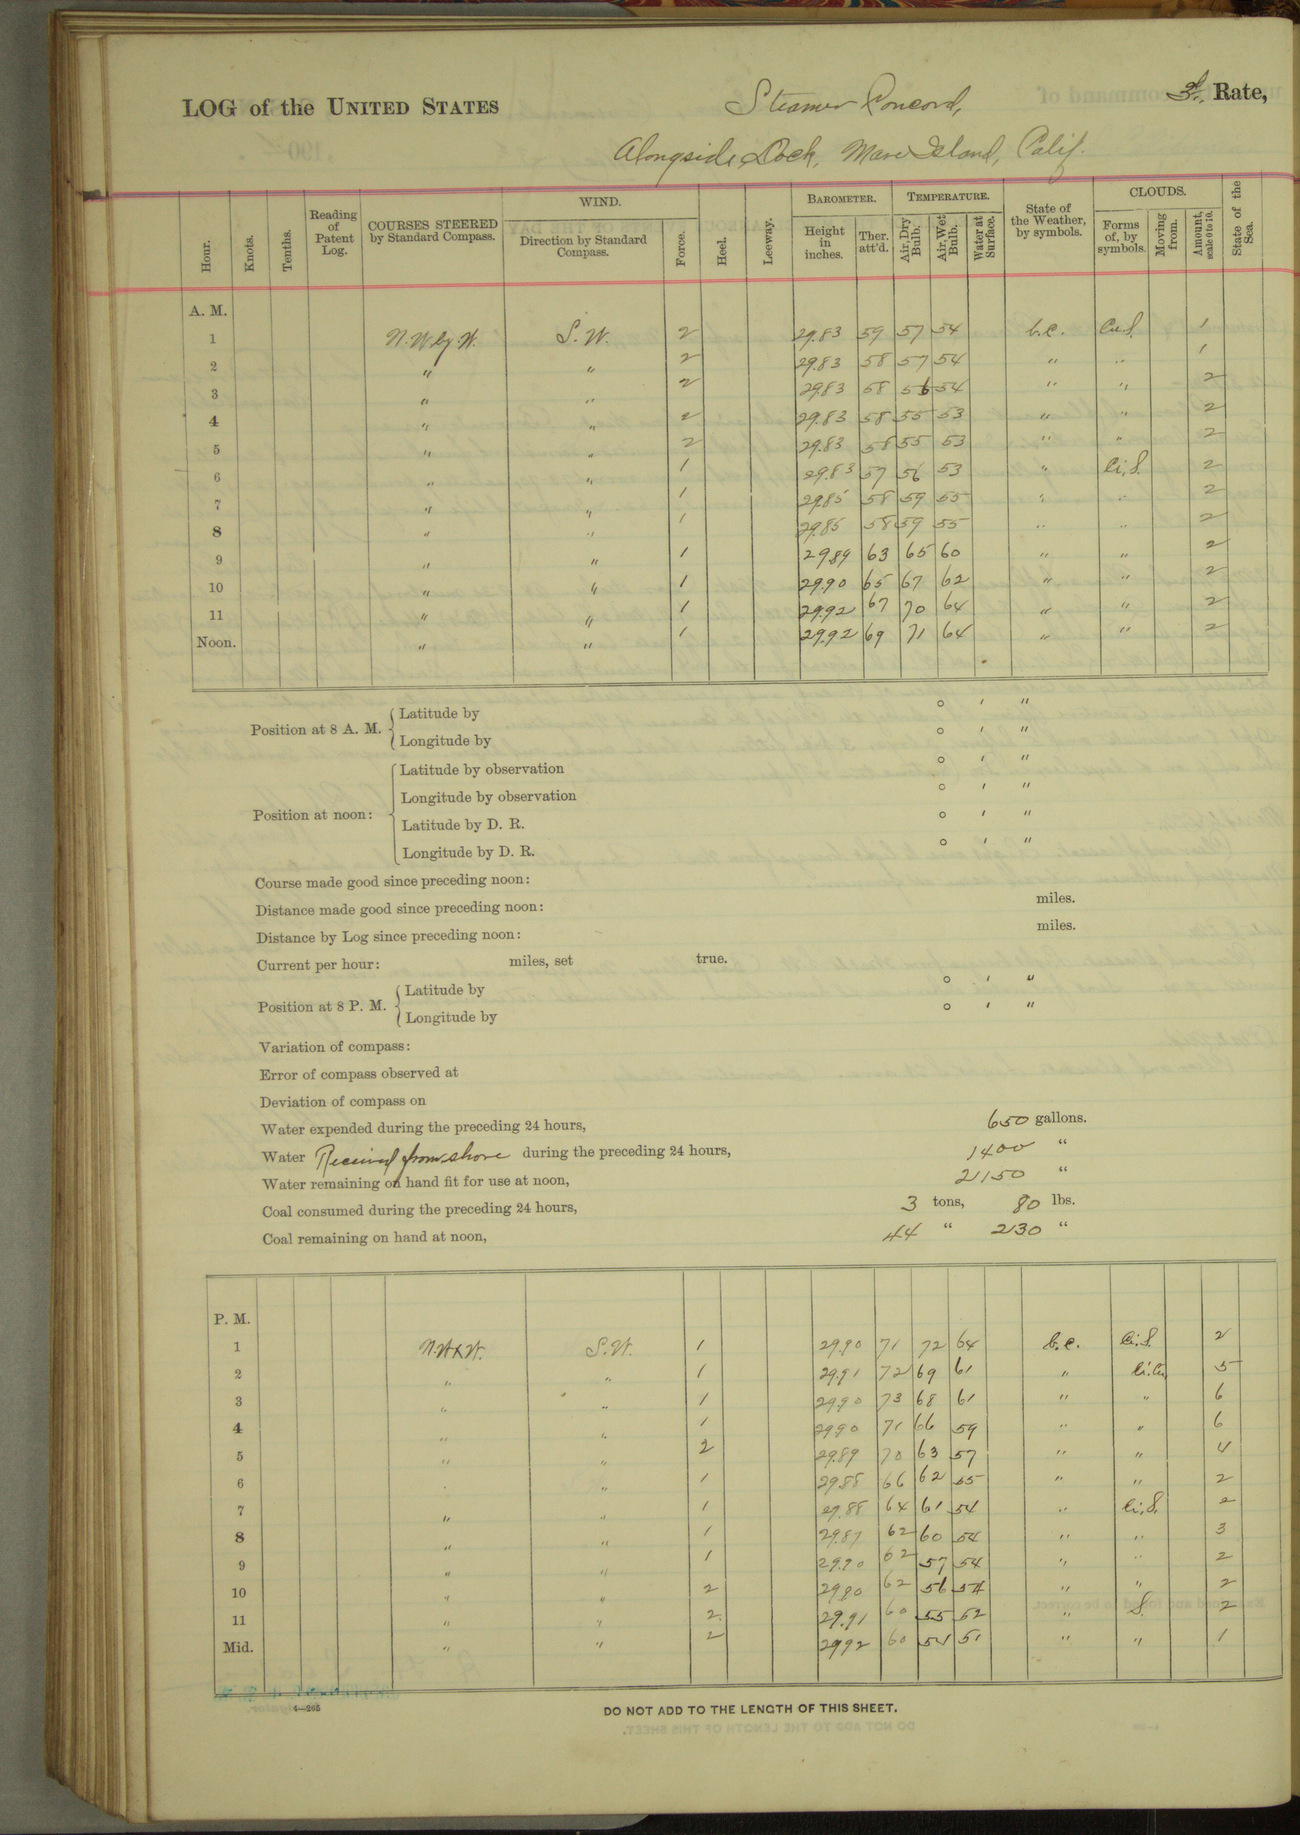 LOG of the UNITED STATES Steamer Concord, 3d. Rate,
Alongside Dock, Mare Island, Calif.
Hour. Knots. Tenths. Reading of Patent Log. COURSES STEERED by Standard Compass. WIND. Direction by Standard Compass. Force. Heel. Leeway. BAROMETER. Height in inches. Ther. att'd. TEMPERATURE. Air, Dry Bulb. Air, Wet Bulb. Water at Surface. State of the Weather, by symbols. CLOUDS. Forms of, by symbols. Moving from. Amount, scale 0 to 10. State of the Sea.
A. M.
1 N.W by. W. S. W. 2 29.83 59 57 54 b.c. Cu.S. 1
2 " " 2 29.83 58 57 54 " " 1
3 " " 2 29.83 58 56 54 " " 2
4 " " 2 29.83 58 55 53 " " 2
5 " " 2 29.83 58 55 53 " " 2
6 " " 1 29.83 57 56 53 " Ci.S. 2
7 " " 1 29.85 58 59 55 " " 2
8 " " 1 29.85 58 59 55 " " 2
9 " " 1 29.89 63 65 60 " " 2
10 " " 1 29.90 65 67 62 " " 2
11 " " 1 29.92 67 70 64 " " 2
Noon. " " 1 29.92 69 71 64 " " 2
Position at 8 A. M. Latitude by ° ′ ″
Longitude by ° ′ ″
Position at noon: Latitude by observation ° ′ ″
Longitude by observation ° ′ ″
Latitude by D. R. ° ′ ″
Longitude by D. R. ° ′ ″
Course made good since preceding noon:
Distance made good since preceding noon: miles.
Distance by Log since preceding noon: miles.
Current per hour: miles, set true.
Position at 8 P. M. Latitude by ° ′ ″
Longitude by ° ′ ″
Variation of compass:
Error of compass observed at
Deviation of compass on
Water expended during the preceding 24 hours, 650 gallons.
Water Received from shore during the preceding 24 hours, 1400 "
Water remaining on hand fit for use at noon, 2150 "
Coal consumed during the preceding 24 hours, 3 tons, 80 lbs.
Coal remaining on hand at noon, 44 " 230 "
P. M.
1 N.W x W. S. W. 1 29.90 71 72 64 b.c. Ci.S. 2
2 " " 1 29.91 72 69 61 " Ci.Cu. 5
3 " " 1 29.90 73 68 61 " " 6
4 " " 1 29.90 71 66 59 " " 6
5 " " 2 29.89 70 63 57 " " 4
6 " " 1 29.88 66 62 55 " " 2
7 " " 1 29.88 64 61 54 " Ci.S. 2
8 " " 1 29.87 62 60 54 " " 3
9 " " 1 29.90 62 57 54 " " 2
10 " " 2 29.90 62 56 54 " " 2
11 " " 2 29.91 60 55 52 " S. 2
Mid. " " 2 29.92 60 54 51 " " 1
4—265
DO NOT ADD TO THE LENGTH OF THIS SHEET.